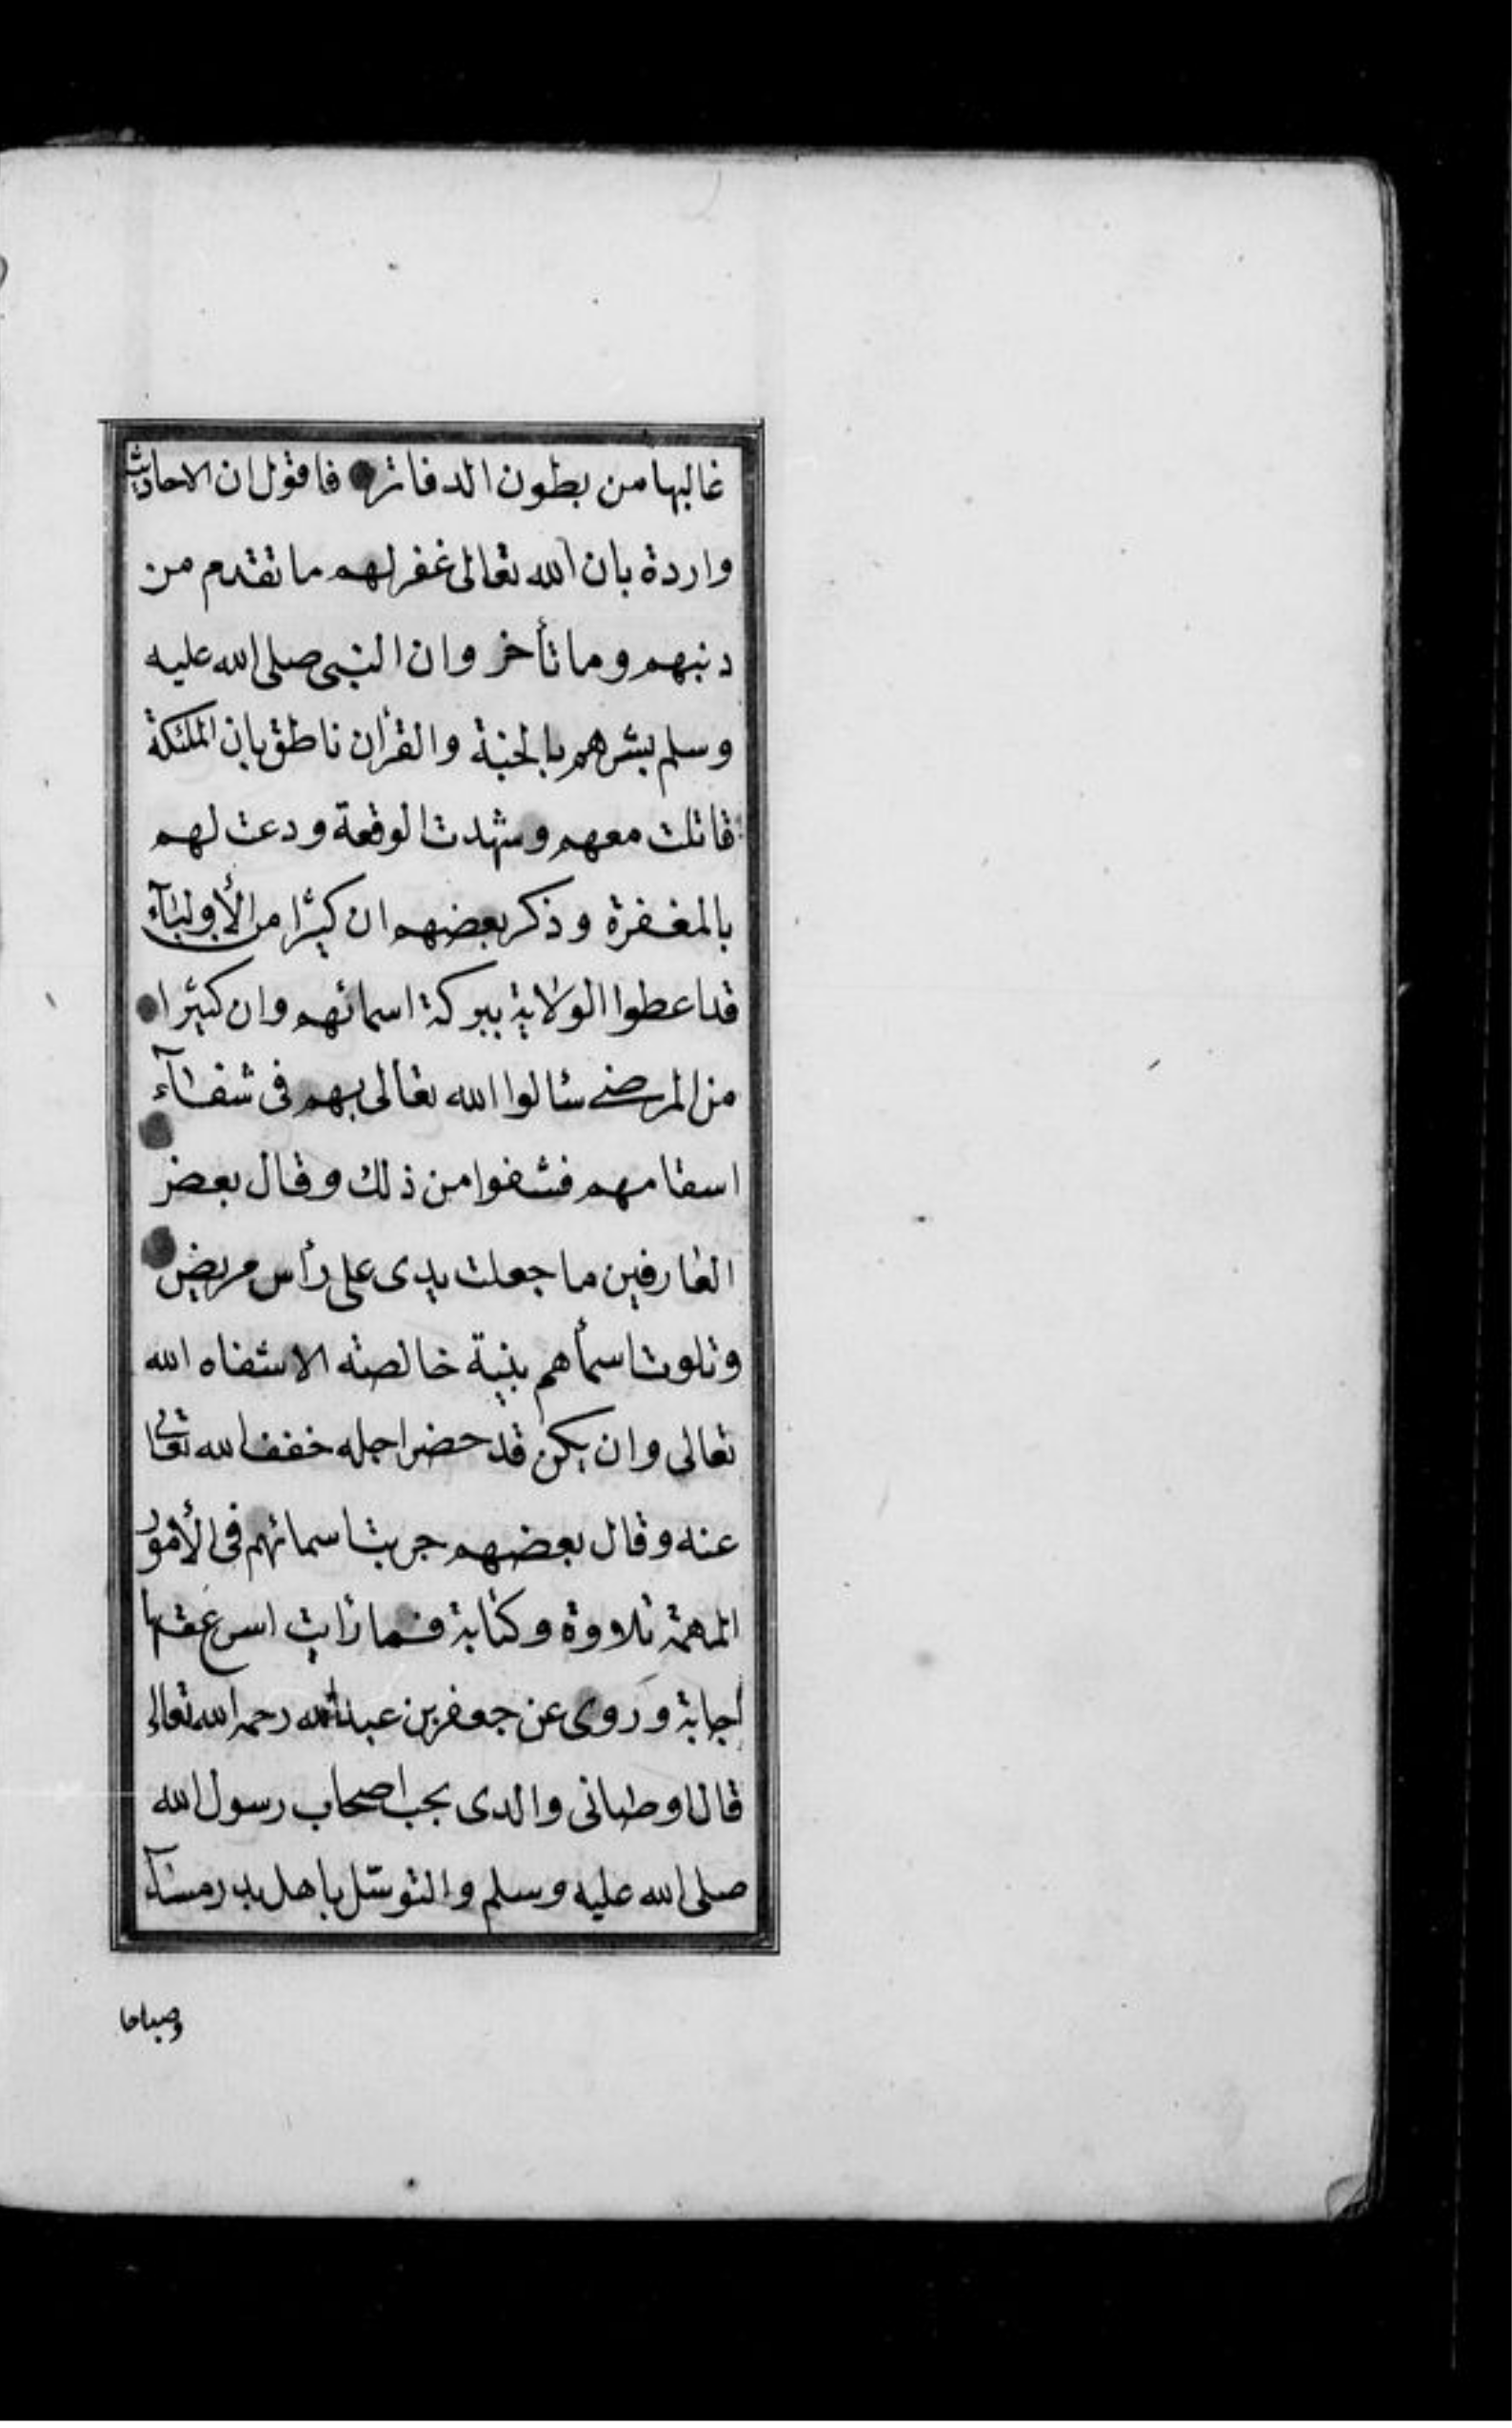 غالبها من بطون الدفاتر فاقول ان الاحاديث
واردة بان الله تعالى غفر لهم ما تقدم من
دنبهم وما تأخر وان النبى صلى الله عليه
وسلم بشرهم بالجنة والقرأن ناطق بان الملئكة
قاتلت معهم وشهدت الوقعة ودعت لهم
بالمغفرة وذكر بعضهم ان كثيرا من الأوليآء
قد اعطوا الولاية ببركة اسمائهم وان كثيرا
من المرضى سئالوا الله تعالى بهم فى شفآء
اسقامهم فشفوا من ذلك وقال بعض
العارفين ما جعلت يدى على رأس مريض
وتلوت اسمأهم بنية خالصته الا شفاه الله
تعالى وان يكن قد حضر اجله خفف الله تعالى
عنه وقال بعضهم جربت اسمائهم فى الأمور
المهمة تلاووة وكتابة فما رايت اسرع منها
اجابة وروى عن جعفر بن عبد الله رحمه الله تعالى
قال اوصانى والدى بحب اصحاب رسول الله
صلى الله عليه وسلم والتوسّل باهل بدر مسآء
وصباحا